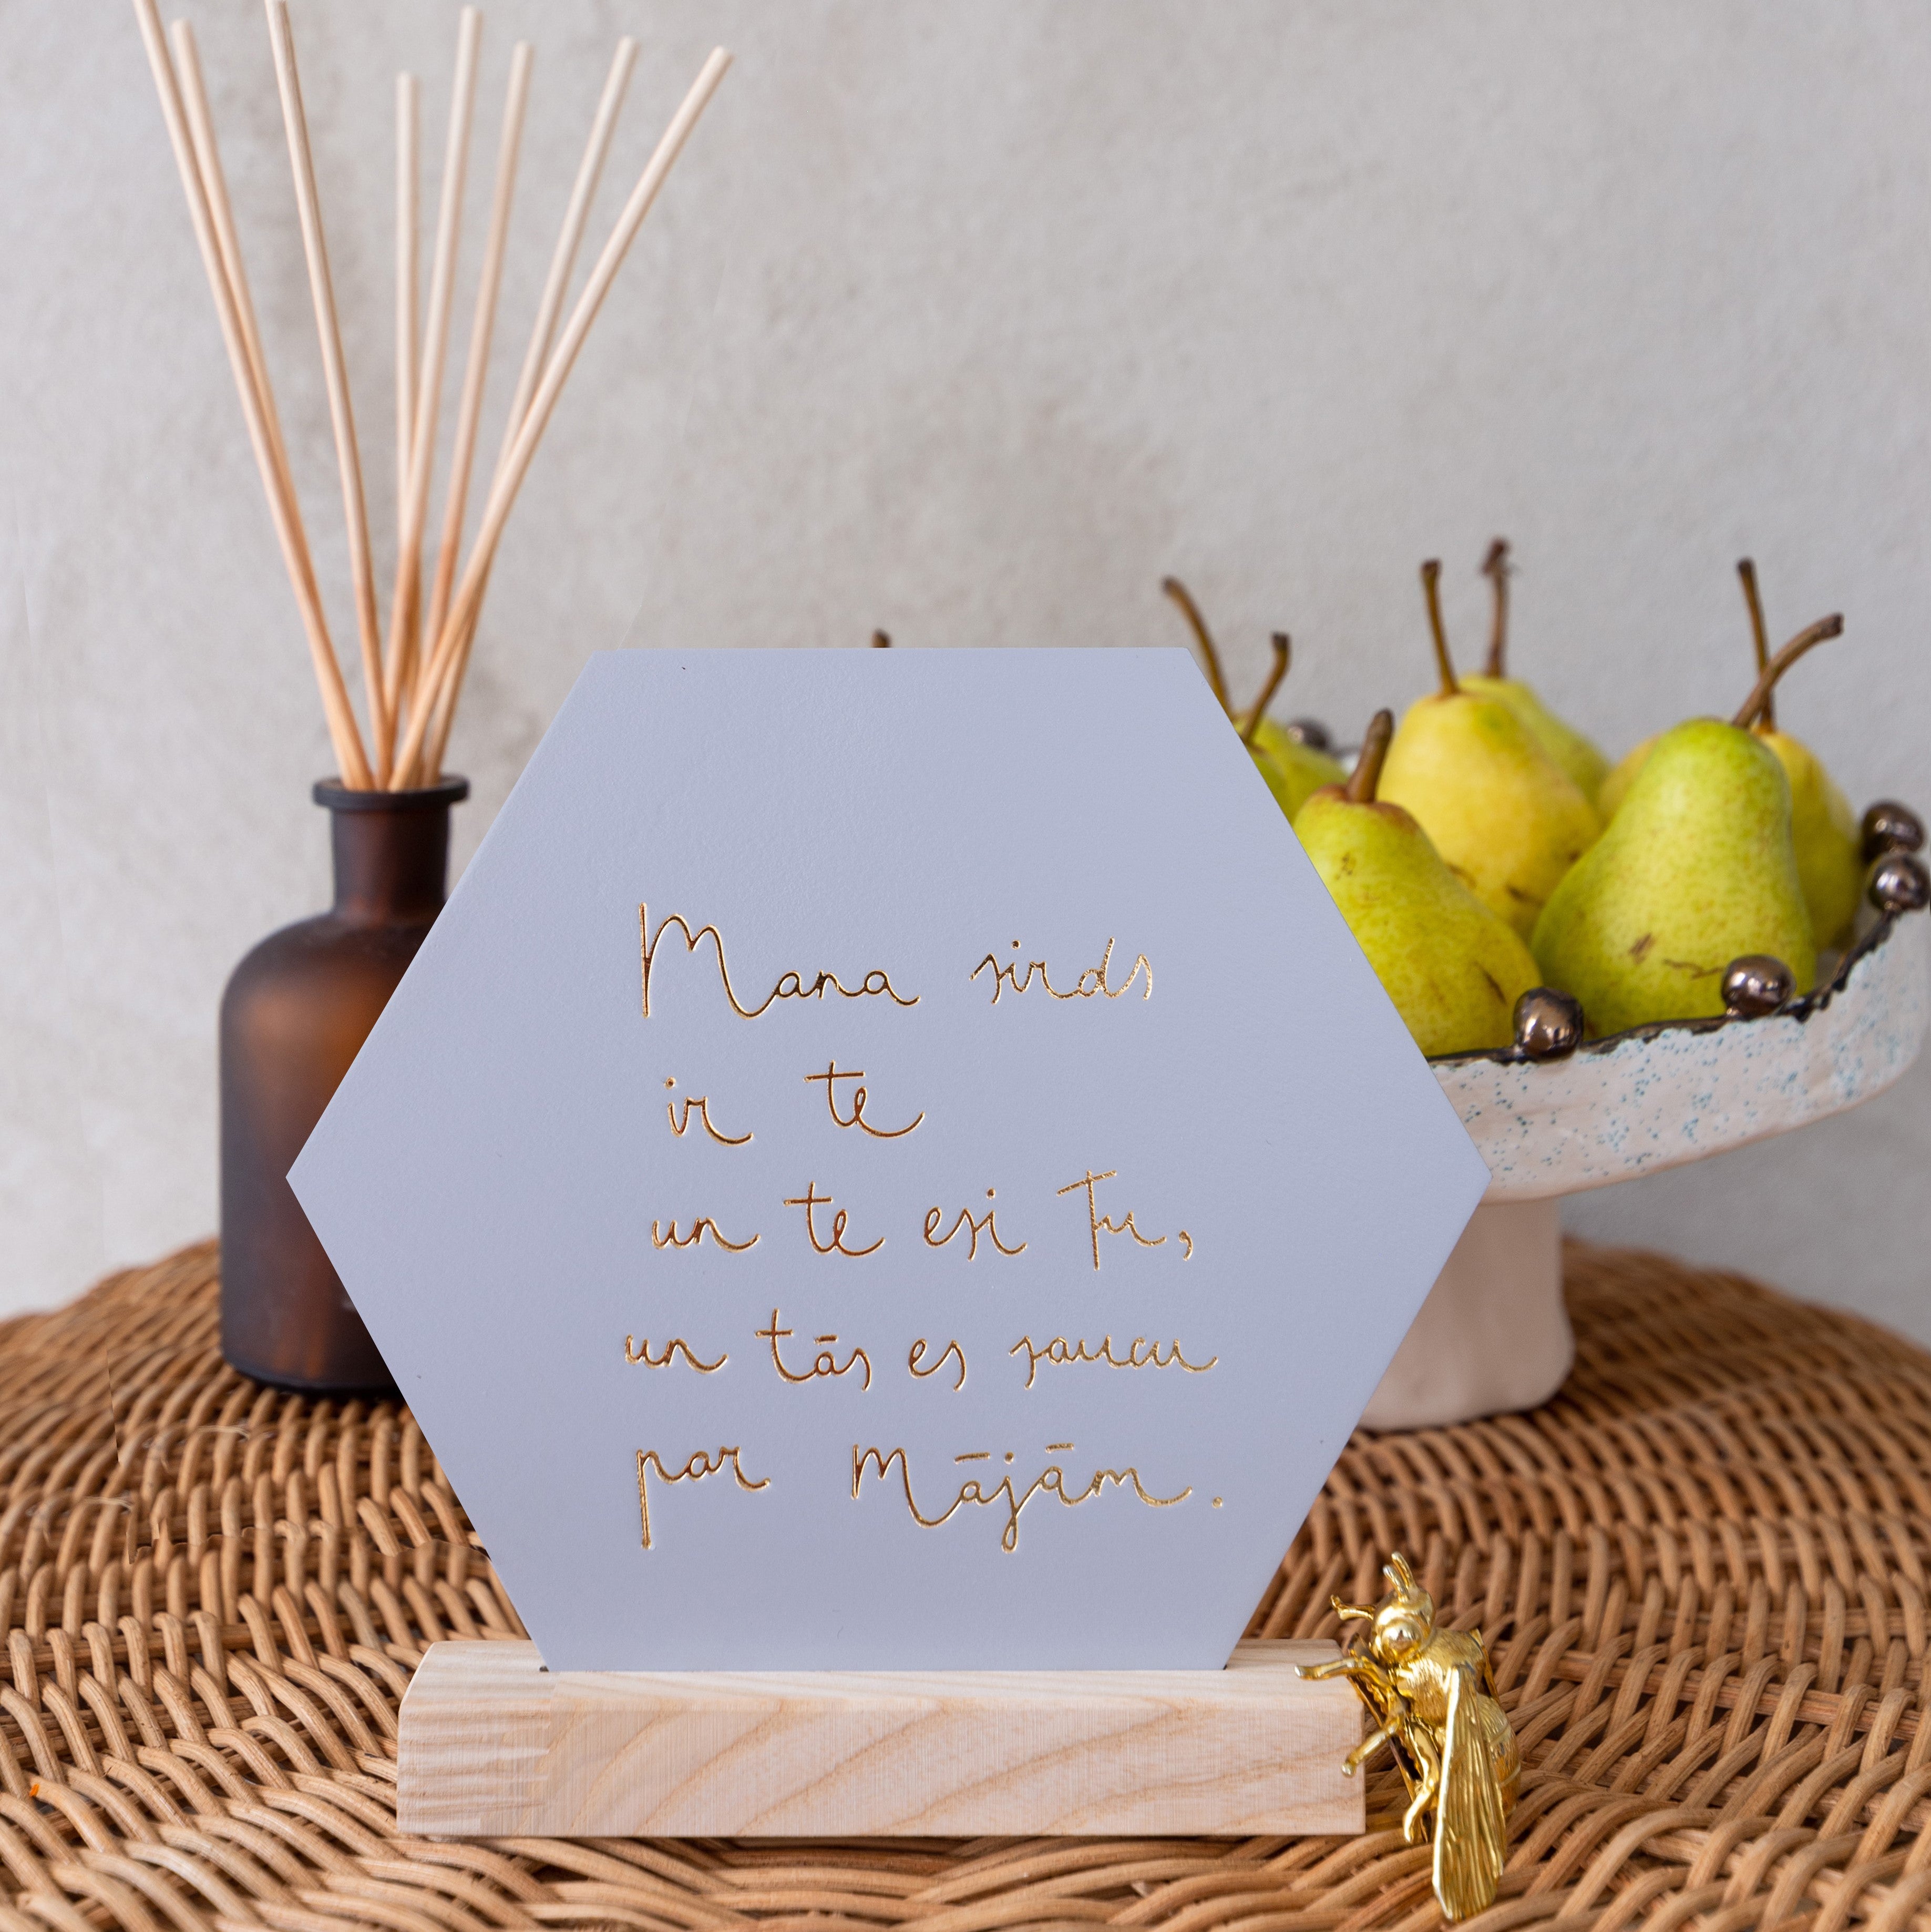 Mana sirds
ir te
un te esi Tu,
un tās es saucu
par Mājām.